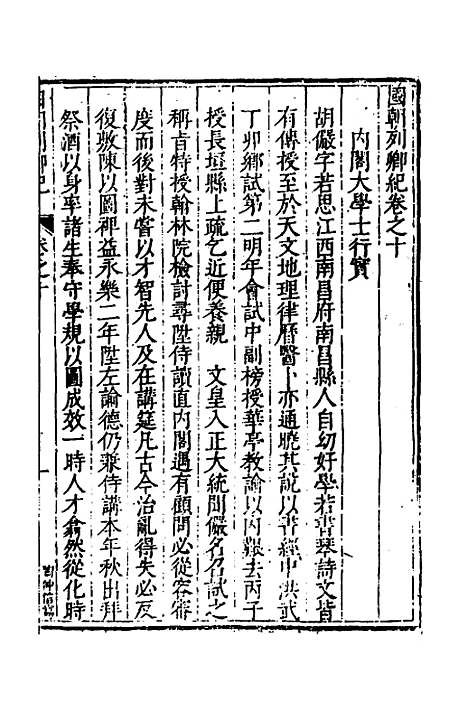 國朝列卿紀卷之十
內閣大學士行實
胡儼字若思江西南昌府南昌縣人自幼好學若書琴詩文皆
有傳授至於天文地理律曆醫卜亦通曉其說以書經中洪武
丁卯鄉試第二明年會試中副榜授華亭教諭以內艱去丙子
授長垣縣上疏乞近便養親　文皇入正大統聞儼名召試之
稱旨特授翰林院檢討尋陞侍讀直內閣遇有顧問必從容審
度而後對未嘗以才智先人及在講筵凡古今治亂得失必反
復敷陳以圖裨益永樂二年陞左諭德仍兼侍講本年秋出拜
祭酒以身率諸生奉守學規以圖成效一時人才翕然從化時
卷之十
一